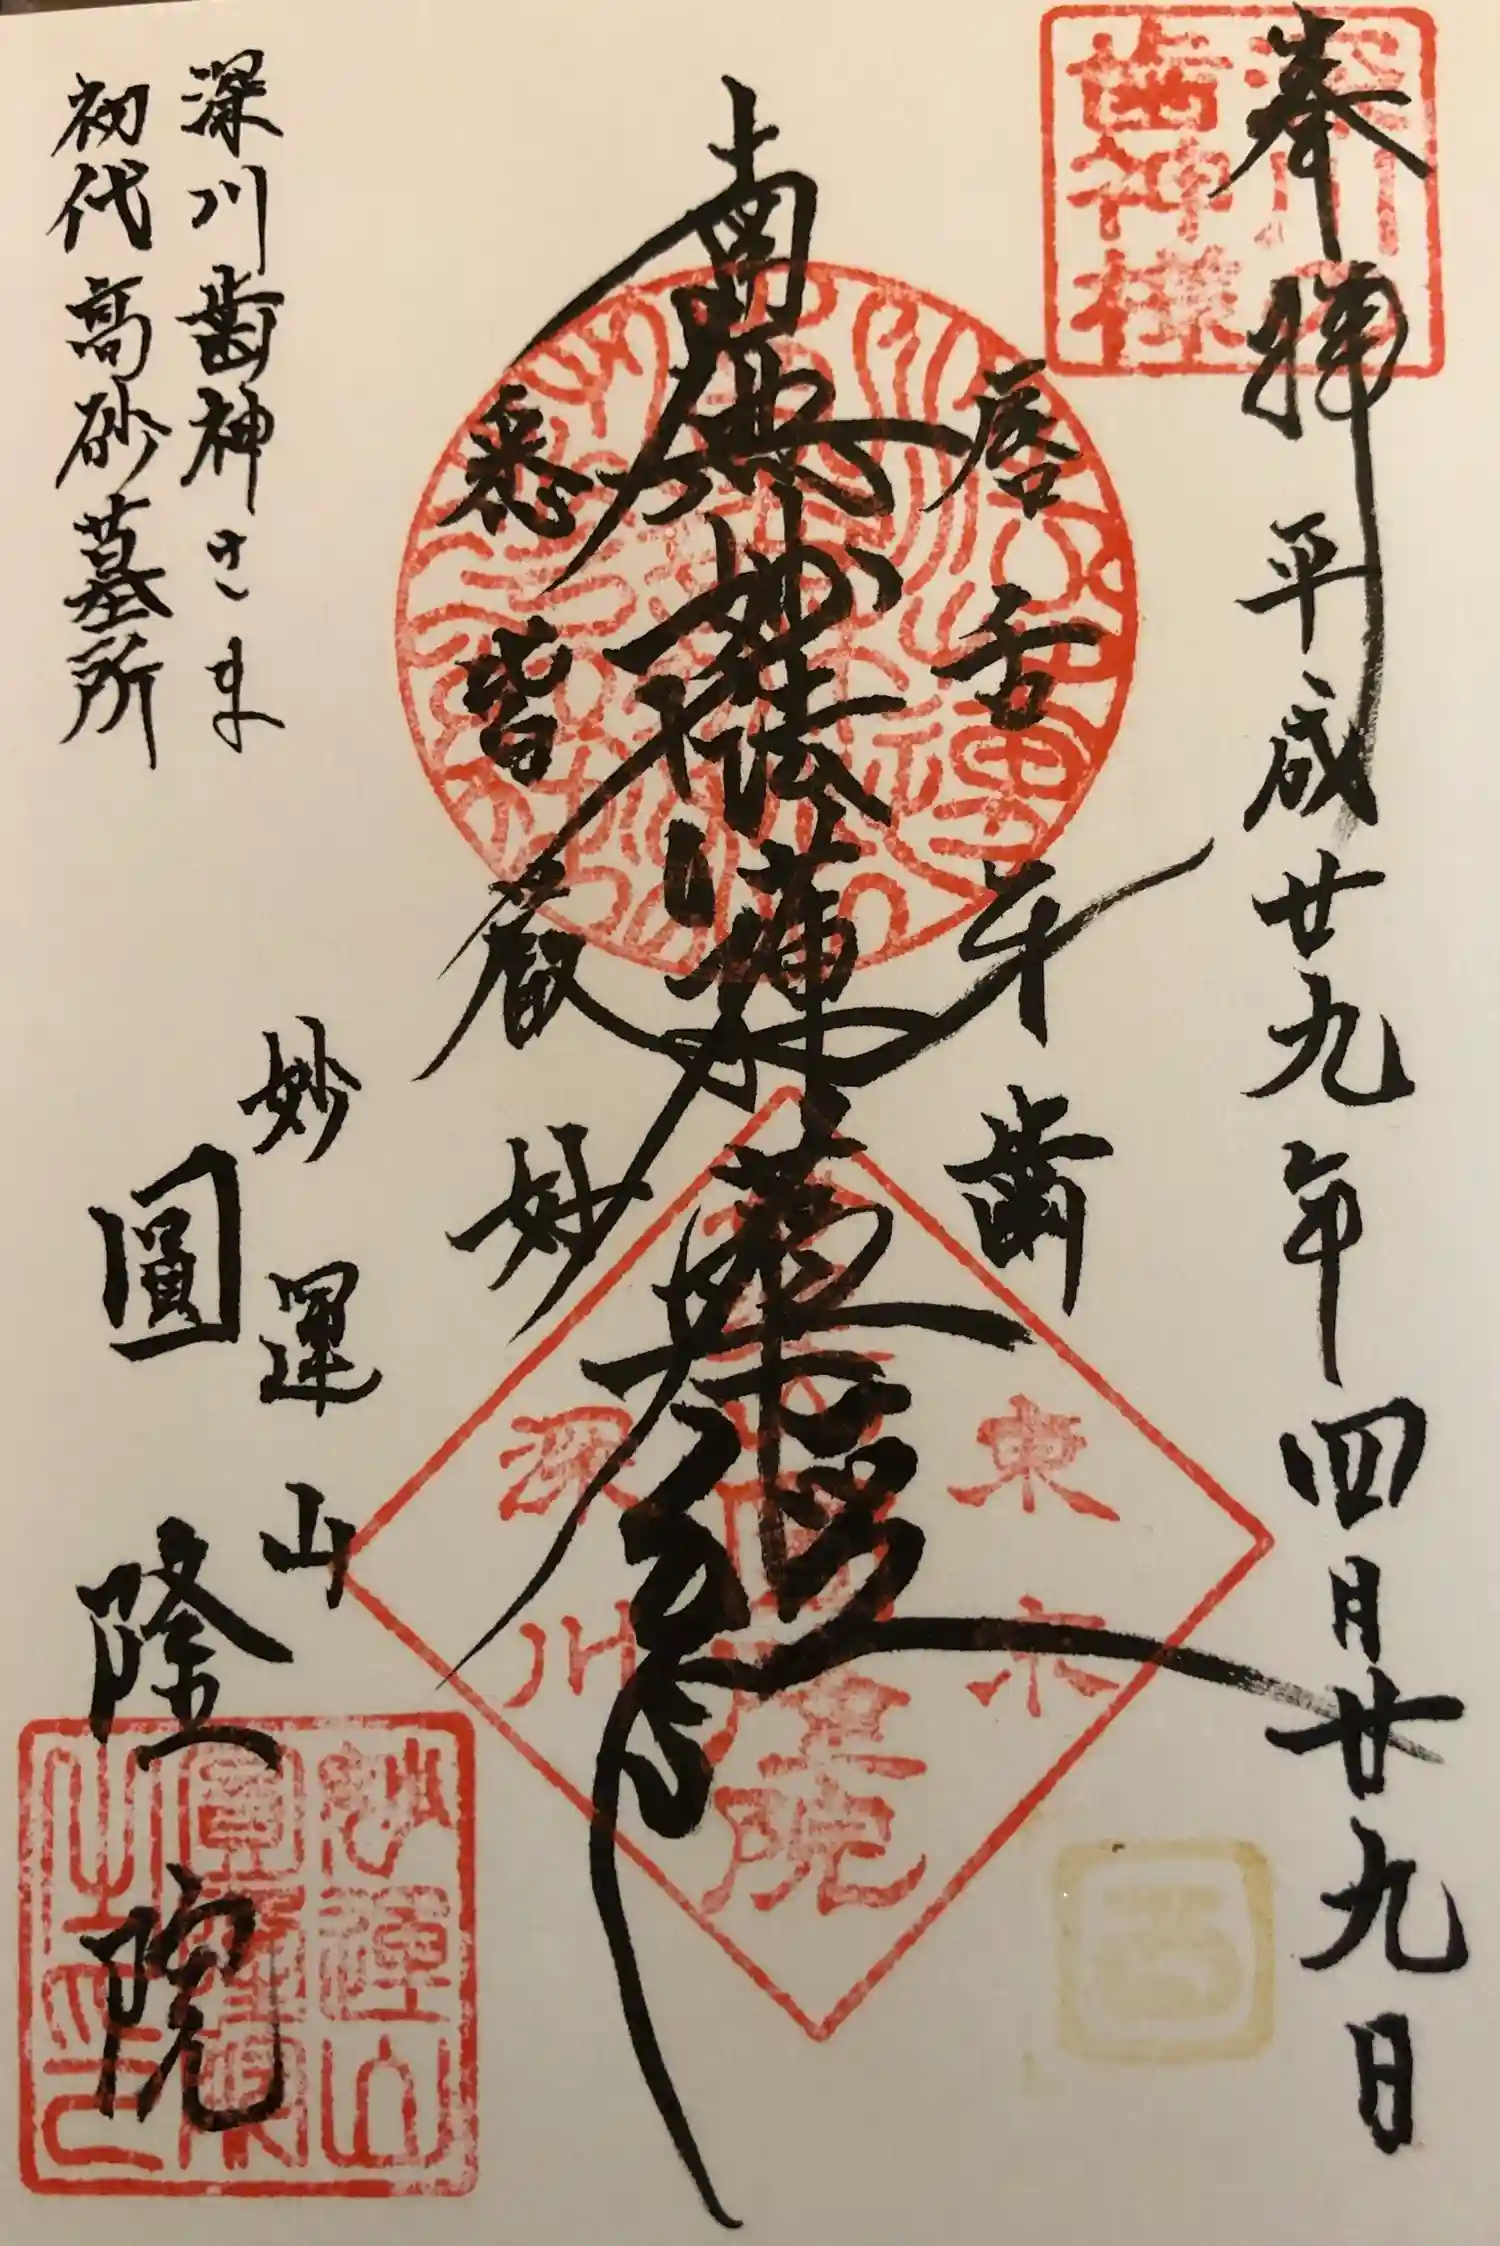 奉拝 平成廿九年四月廿九日
深川歯神様
唇舌牙歯
南無妙法蓮華経
悉皆厳妙
東京
深川
妙運山
圓隆院
深川歯神さま
初代高砂墓所
妙運山
圓隆院
之印